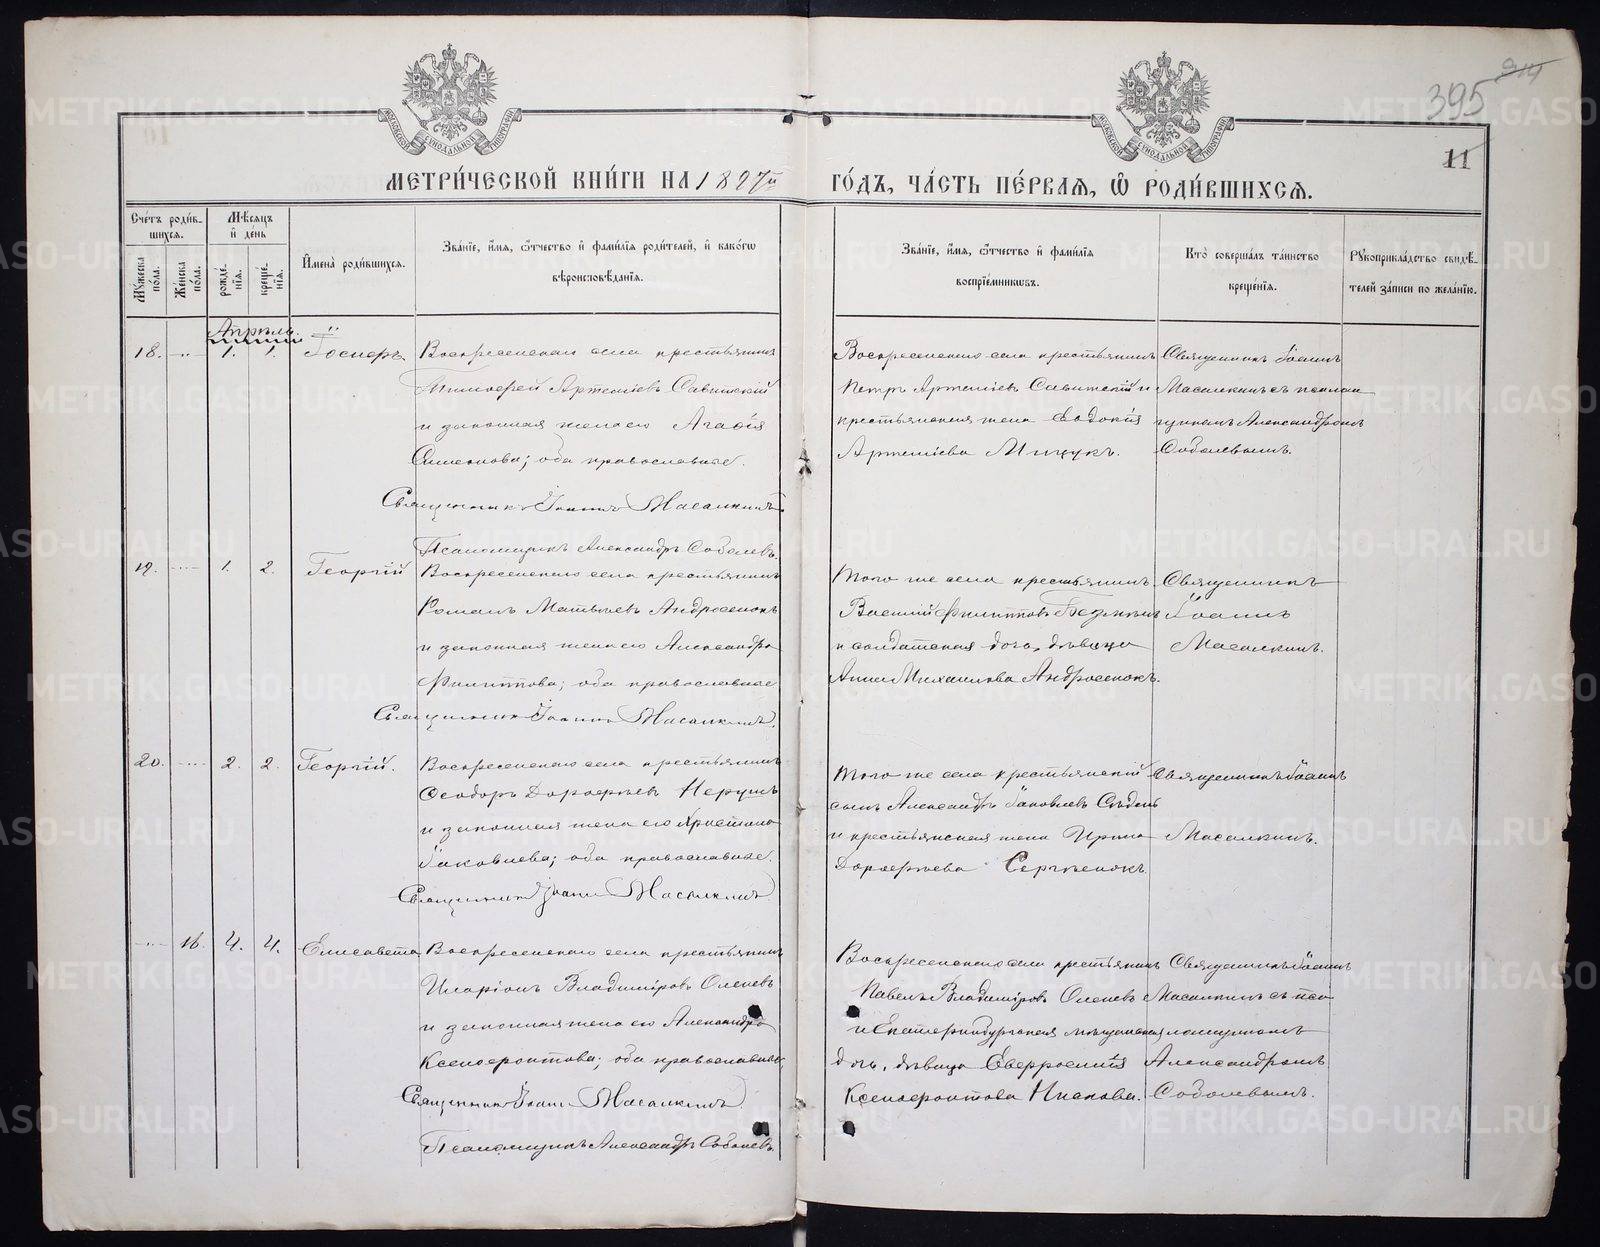 395
11
МЕТРИ́ЧЕСКОЙ КНИ́ГИ НА 1897й
ГО́ДЪ, ЧА́СТЬ ПЕ́РВАЯ, Ѡ РОДИ́ВШИХСѦ.
Сче́тъ роди́в-
шихся.
Мѣсяцъ
и де́нь
Му́жеска по́ла.
Же́нска по́ла.
рожде́нїя.
креще́нїя.
Имена̀ роди́вшихся.
Зва́нїе, и́мя, ѻ́тчество и фами́лїя роди́телей, и како́гѡ
вѣроисповѣ́данїя.
Зва́нїе, и́мя, ѻ́тчество и фами́лїя
воспрїе́мниковъ.
Кто̀ соверша́лъ та́инство
креще́нїя.
Рукоприкла́дство свидѣ́-
телей за́писи по жела́нїю.
Апрѣль.
18. 1. 1.
Воскресенскаго села крестьянинъ
Тимофей Артемiевъ Савитскiй
и законная жена его Агафiя
Симеонова; оба православные.
Священникъ Iоаннъ Масалкинъ.
Псаломщикъ Александръ Соболевъ.
Воскресенскаго села крестьянинъ
Петръ Артемiевъ Савитскiй и
крестьянская жена Евдокiя
Артемiева Мицукъ.
Священникъ Iоаннъ
Масалкинъ съ псалом
щикомъ Александромъ
Соболевымъ.
19. 1. 2. Георгiй
Воскресенскаго села крестьянинъ
Романъ Матвѣевъ Андросенокъ
и законная жена его Александра
Филиппова; оба православные
Священникъ Iоаннъ Масалкинъ.
Того же села крестьянинъ
Василiй Филипповъ
и солдатская дочь, дѣвица
Анна Михаилова Андросенокъ.
Священникъ
Iоаннъ
Масалкинъ.
20. 2. 2. Георгiй.
Воскресенскаго села крестьянинъ
Ѳеодоръ Дорофѣевъ Нерушъ
и законная жена его Христина
Iаковлева; оба православные.
Священникъ Iоаннъ Масалкинъ
Того же села крестьянскiй
сынъ Александръ Iаковлевъ
и крестьянская жена Ирина
Дорофѣева Сергѣенокъ.
Священникъ Iоаннъ
Масалкинъ.
16. 4. 4. Елисавета
Воскресенскаго села крестьянинъ
Иларiонъ Владимiровъ Оленевъ
и законная жена его Александра
Ксенофонтова; оба православные,
Священникъ Iоаннъ Масалкинъ.
Псаломщикъ Александръ Соболевъ.
Воскресенскаго села крестьянинъ
Павелъ Владимiровъ Оленевъ
и Екатеринбургская мѣщанская
дочь, дѣвица Евфросинiя
Ксенофонтова
Священникъ Iоаннъ
Масалкинъ съ пса
ломщикомъ
Александромъ
Соболевымъ.
METRIKI.GASO-URAL.RU